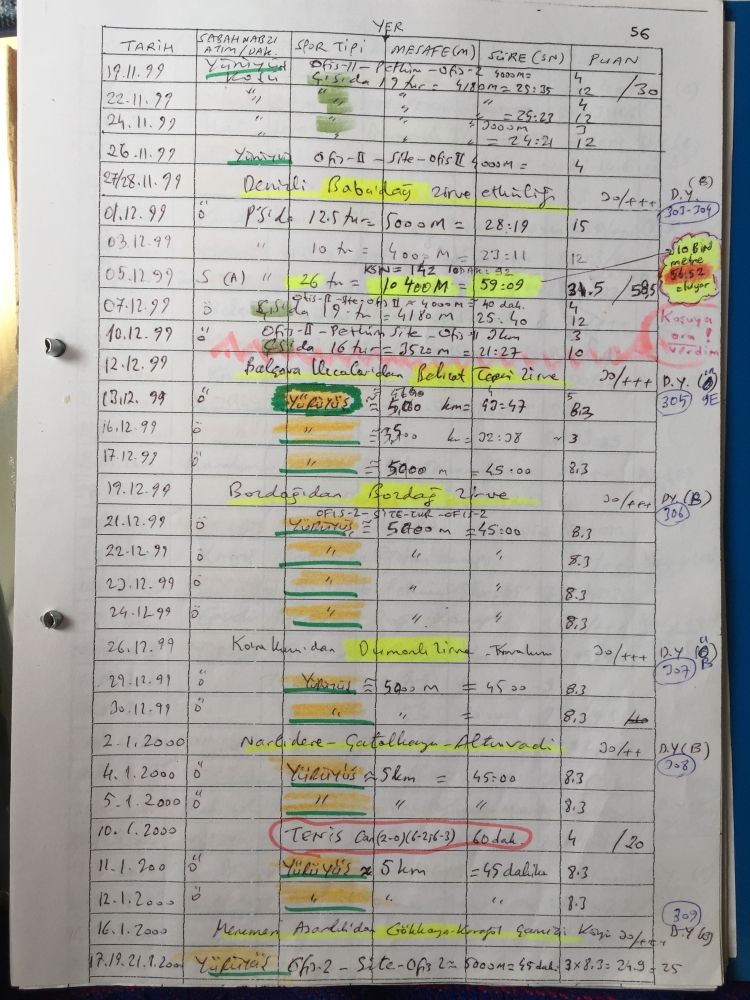 YER
56
TARİH SABAH NABZI ATIM/DAK. SPOR TİPİ MESAFE(M) SÜRE (SN) PUAN
19.11.99 Yürüyüş Ofis-II - Petkim - Ofis-2 4000m= 4
Koşu Ç.Sida 19 tur = 4180M = 25:35 12 /30
22.11.99 " " " " 4
" " " = 25:23 12
24.11.99 " " " 3000m 3
" " " = 24:21 12
26.11.99 Yürüyüş Ofis-II - Site - Ofis II 4000m= 4
27/28.11.99 Denizli Babadağ zirve etkinliği 30/+++ D.Y. (B)
303-304
01.12.99 ö P.Sida 12.5 tur= 5000M = 28:19 15
03.12.99 " 10 tur = 4000M = 23:11 12
10 BİN metre 56:52 oluyor
KSN = 142 10DAK: 92
05.12.99 S (A) " 26 tur = 10400M = 59:09 31.5 /58,5
07.12.99 ö Ofis-II-Site-Ofis II = 4000m = 40 dak. 4
Ç.Sida 19 tur = 4180M 25.40 12
Koşuya ara verdim!
10.12.99 ö Ofis-II - Petkim Site - Ofis II 3km 3
Ç.Sida 16 tur = 3520m = 21:27 10
12.12.99 Balçova Ilıcaları'dan Belkat Tepesi Zirve 30/+++ D.Y.
305
13.12.99 ö YÜRÜYÜŞ ≅ km = 43=47 8.3
16.12.99 ö " ≅ k = 32:38 ~ 3
17.12.99 ö " ≅ 5000 m = 45:00 8.3
19.12.99 Bozdağ'dan Bozdağ zirve 30/+++ D.Y. (B)
306
OFİS-2 - SİTE-TUR - OFİS-2
21.12.99 ö Yürüyüş ≅ 5000 m = 45:00 8.3
22.12.99 ö " " " 8.3
23.12.99 ö " " " 8.3
24.12.99 ö " " " 8.3
26.12.99 Karakuzu'dan Dumanlı zirve - Karakuzu 30/+++ D.Y
307 B
29.12.99 ö Yürüyüş ≅ 5000 m = 45 00 8.3
30.12.99 ö " " = 8.3
2.1.2000 Narlıdere - Çatalkaya - Altınvadi 30/++ D.Y(B)
308
4.1.2000 ö YÜRÜYÜŞ ≈ 5km = 45:00 8.3
5.1.2000 ö " " " 8.3
10.1.2000 TENİS Can (2-0)(6-2;6-3) 60 dak. 4 /20
11.1.200 ö YÜRÜYÜŞ ≈ 5 km = 45 dakika 8.3
12.1.2000 ö " " " 8.3
309
16.1.2000 Menemen Gökkaya Köyü 30/+++ D.Y(B)
17.19.21.1.2000 YÜRÜYÜŞ Ofis-2 - Site-Ofis 2 ≈ 5000m = 45 dak. 3x8.3= 24.9 = 25